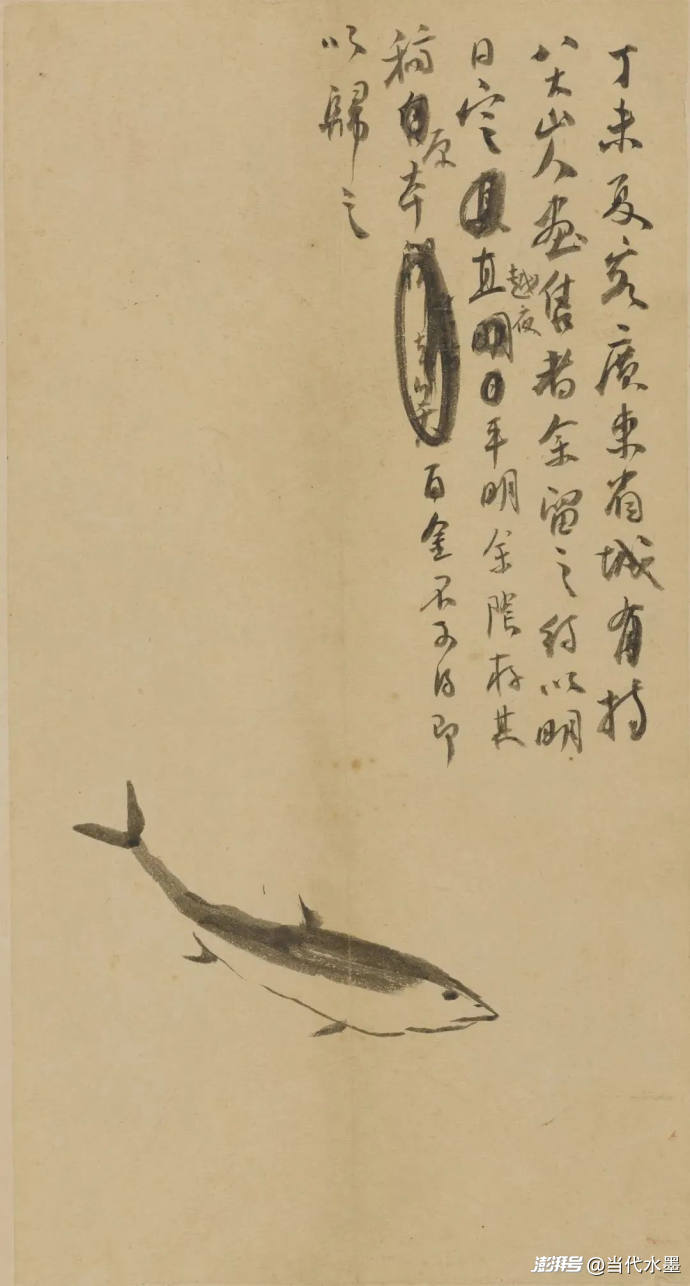 丁未夏客廣東省城有持
八大山人畫售者余留之約以明
日定直越夜平明余隂存其
稿原本百金不可得即
以歸之
澎湃号@当代水墨